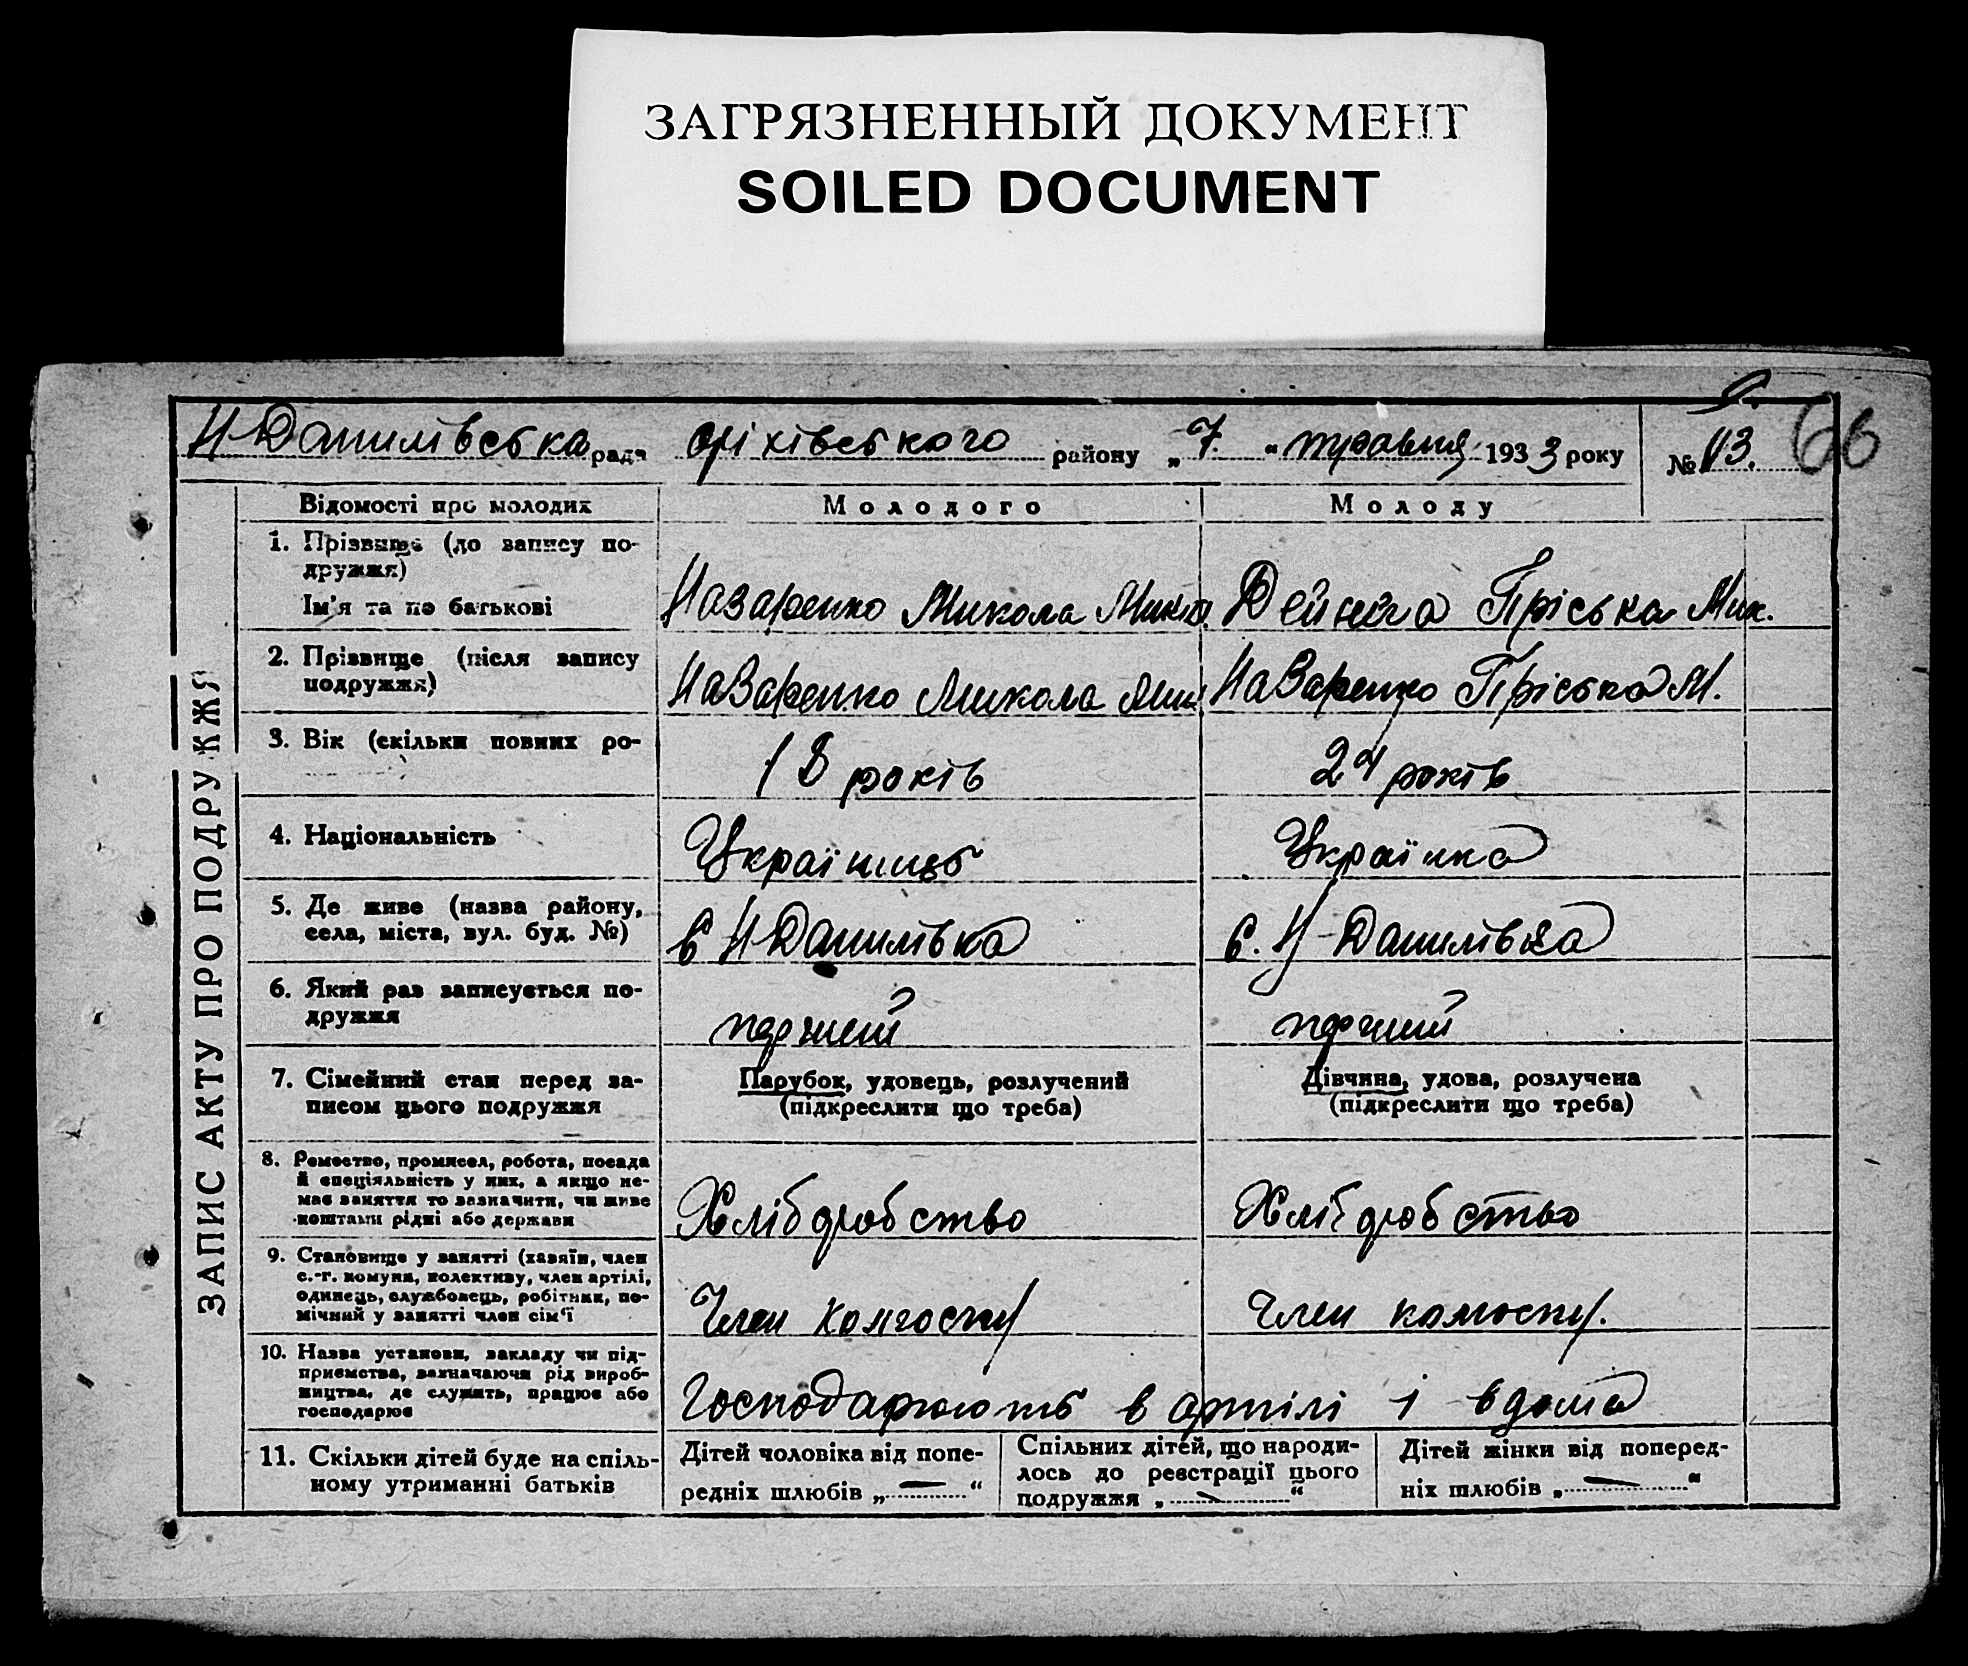 ЗАГРЯЗНЕННЫЙ ДОКУМЕНТ
SOILED DOCUMENT
Н Данилівська рада оріхівського району „7“ травня 1933 року № 13. 66
Відомості про молодих Молодого Молоду
1. Прізвище (до запису по-
дружжя)
Ім'я та по батькові
Назаренко Микола Микол. Дейнега Пріська Мик.
2. Прізвище (після запису
подружжя)
Назаренко Микола Мик Назаренко Пріська М.
3. Вік (скільки повних ро-
18 років 24 років
4. Національність
Українець Українка
5. Де живе (назва району,
села, міста, вул. буд. №)
с Н Данилівка с. Н-Данилівка
6. Який раз записується по-
дружжя
перший перший
7. Сімейний стан перед за-
писом цього подружжя
Парубок, удовець, розлучений
(підкреслити що треба)
Дівчина, удова, розлучена
(підкреслити що треба)
8. Ремество, промисел, робота, посада
й спеціяльність у них, а якщо не-
має заняття то зазначити, чи живе
коштами рідні або держави
Хліборобство Хліборобство
9. Становище у занятті (хазяїн, член
с.-г. комуни, колективу, член артілі,
одинець, службовець, робітник, по-
мічний у занятті член сім'ї
Член колгоспу Член колгоспу.
10. Назва установи, закладу чи під-
приємства, зазначаючи рід вироб-
ництва, де служить, працює або
господарює
Господарюють в артілі і вдома
11. Скільки дітей буде на спіль-
ному утриманні батьків
Дітей чоловіка від попе-
редніх шлюбів „—“
Спільних дітей, що народи-
лось до реєстрації цього
подружжя „—“
Дітей жінки від поперед-
ніх шлюбів „—“
ЗАПИС АКТУ ПРО ПОДРУЖЖЯ